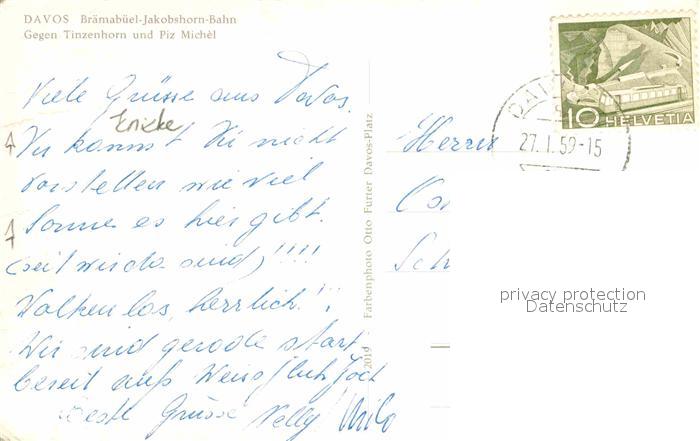 DAVOS Brämabüel-Jakobshorn-Bahn
Gegen Tinzenhorn und Piz Michèl
Viele Grüsse aus Davos.
Du kannst Dir nicht
vorstellen wie viel
Sonne es hier gibt.
(seit wir da sind) !!!!
Wolkenlos, herrlich!!!
Wir sind gerade start
bereit aufs Weissfluhjoch
Beste Grüsse Nelly
Farbenphoto Otto Furter Davos-Platz
2019
10 HELVETIA
DAVOS
27.1.59-15
Herrn
privacy protection
Datenschutz